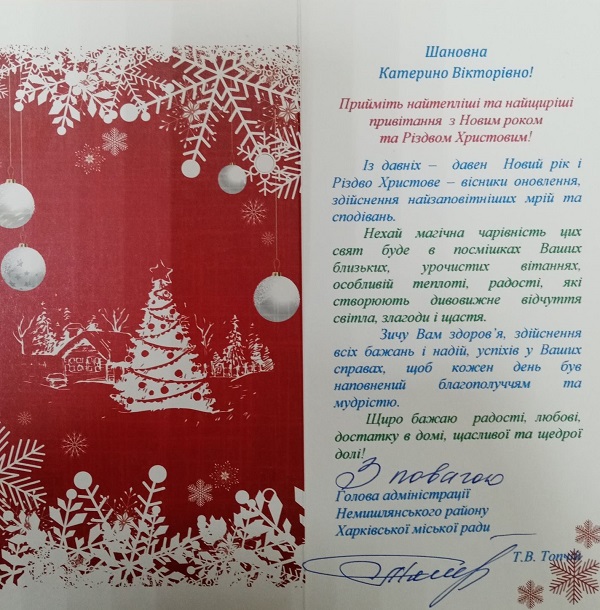 Шановна
Катерино Вікторівно!
Прийміть найтепліші та найщиріші
привітання з Новим роком
та Різдвом Христовим!
Із давніх – давен Новий рік і
Різдво Христове – вісники оновлення,
здійснення найзаповітніших мрій та
сподівань.
Нехай магічна чарівність цих
свят буде в посмішках Ваших
близьких, урочистих вітаннях,
особливій теплоті, радості, які
створюють дивовижне відчуття
світла, злагоди і щастя.
Зичу Вам здоров’я, здійснення
всіх бажань і надій, успіхів у Ваших
справах, щоб кожен день був
наповнений благополуччям та
мудрістю.
Щиро бажаю радості, любові,
достатку в домі, щасливої та щедрої
долі!
З повагою
Голова адміністрації
Немишлянського району
Харківської міської ради
Т.В.